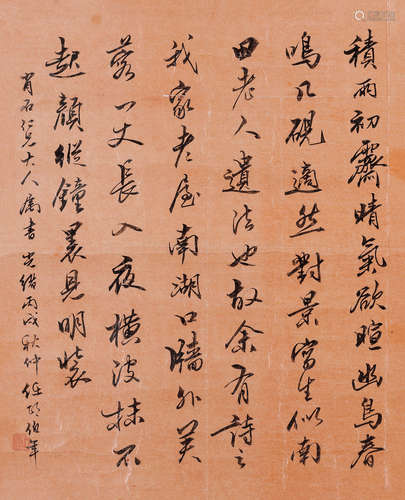 積雨初霽晴氣欲暄幽鳥春
鳴几硯適然對景寫生似南
田老人遺法也故余有詩云
我家老屋南湖口牆外芙
蓉一丈長入夜橫波抹不
起顏縱鐘裏見明裝
肖石仁兄大人屬書 光緒丙戌秋仲 任頤伯年